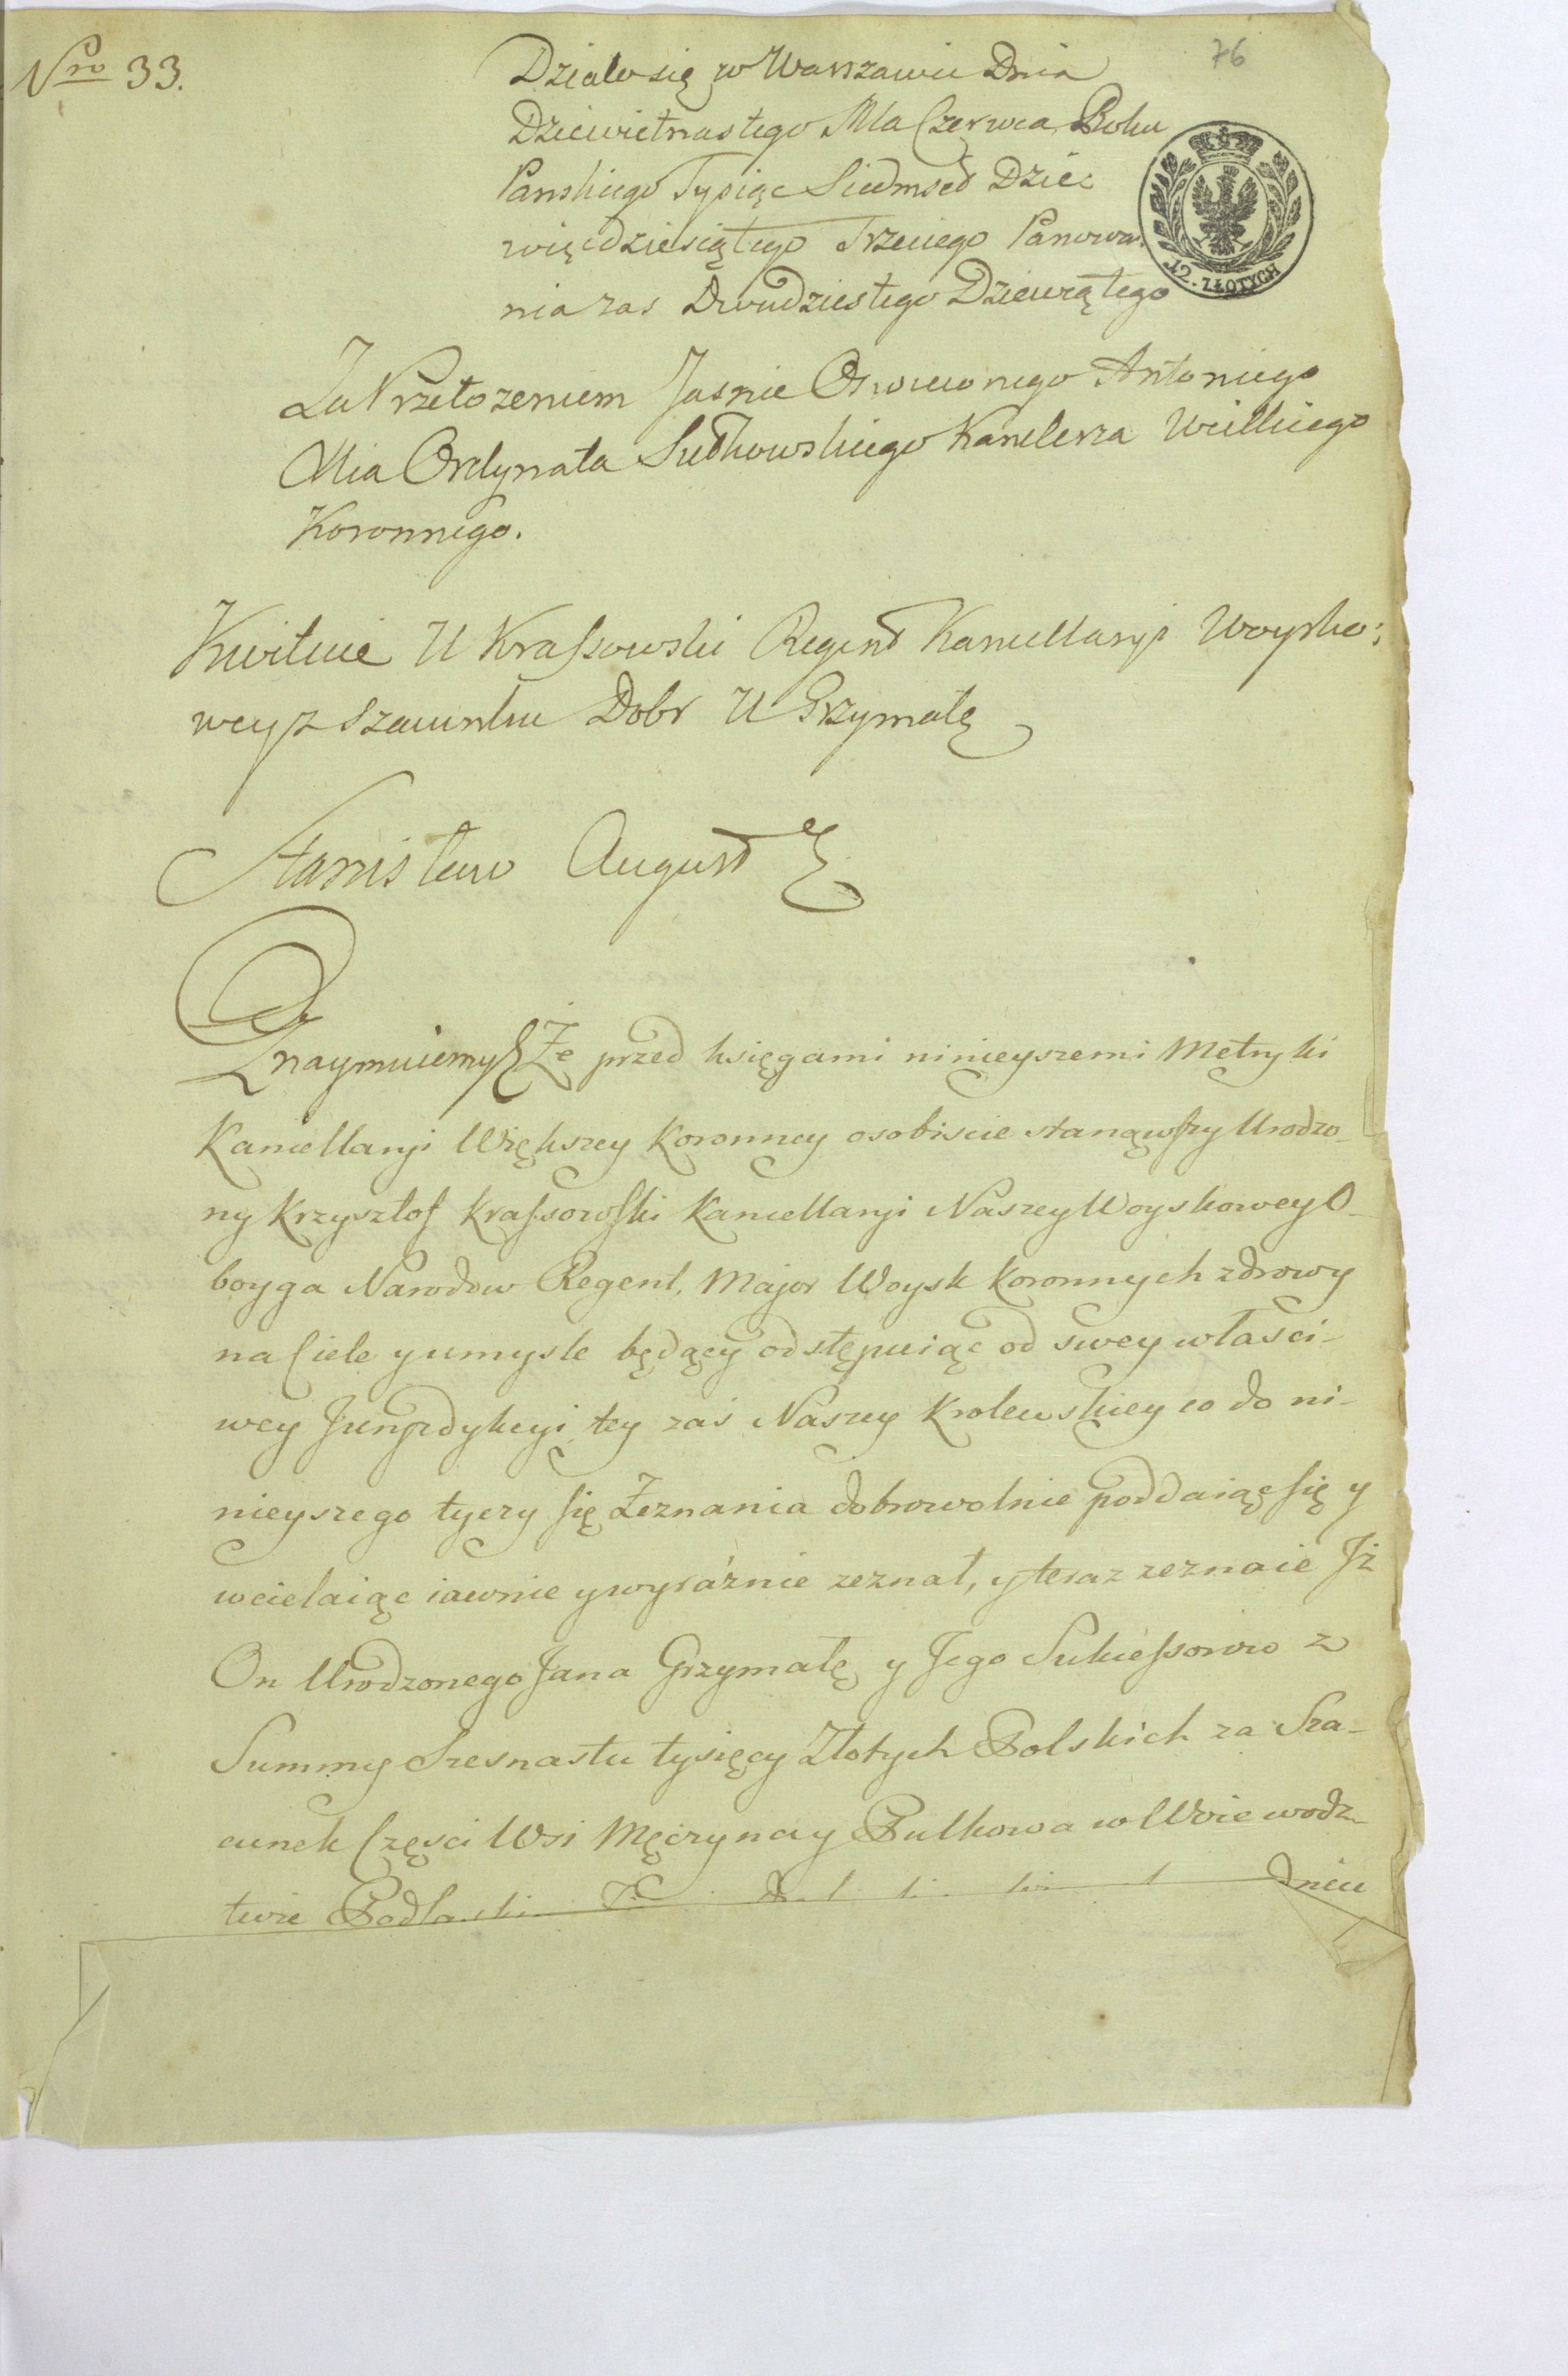 Nro 33.
76
Działo się w Warszawie Dnia
Dziewietnastego Mca Czerwca Roku
Panskiego Tysiąc Siedmset Dzie:
więcdziesiątego Trzeciego Panowa:
nia zas Dwudziestego Dziewiątego
12. ZŁOTYCH
Za Przełozeniem Jasnie Oswieconego Antoniego
Xia Ordynata Sułkowskiego Kanclerza Wielkiego
Koronnego.
Kwituie U Krassowski Regent Kancellaryi Woysko:
wey z szacunku Dobr U Grzymałę
Stanisław August
Znaymuiemy Że przed księgami ninieyszemi Metryki
Kancellaryi Większey Koronney osobiscie stanąwszy Urodzo_
ny Krzysztof Krassowski Kancellaryi Naszey Woyskowey O_
boyga Narodow Regent, Major Woysk Koronnych zdrowy
na Ciele y umysle będący odstępuiąc od swey właści_
wey Juryzdykcyi, tey zaś Naszey Krolewskiey co do ni_
nieyszego tyczy się Zeznania dobrowolnie poddaiąc się y
wcielaiąc iawnie y wyraźnie zeznał, y teraz zeznaie Jż
On Urodzonego Jana Grzymałę y Jego Sukcessorow z
Summy Szesnastu tysięcy Złotych Polskich za Sza_
cunek Części Wsi Męczyna y Pulkowa w Woiewodz_
twie dniu